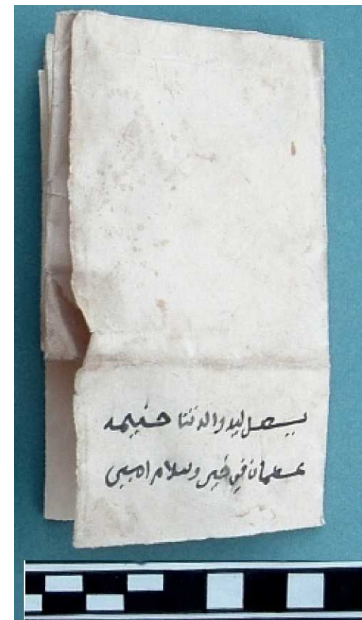 يصل ليد والدتنا حنيمه
عسلمان في خير وسلام امين